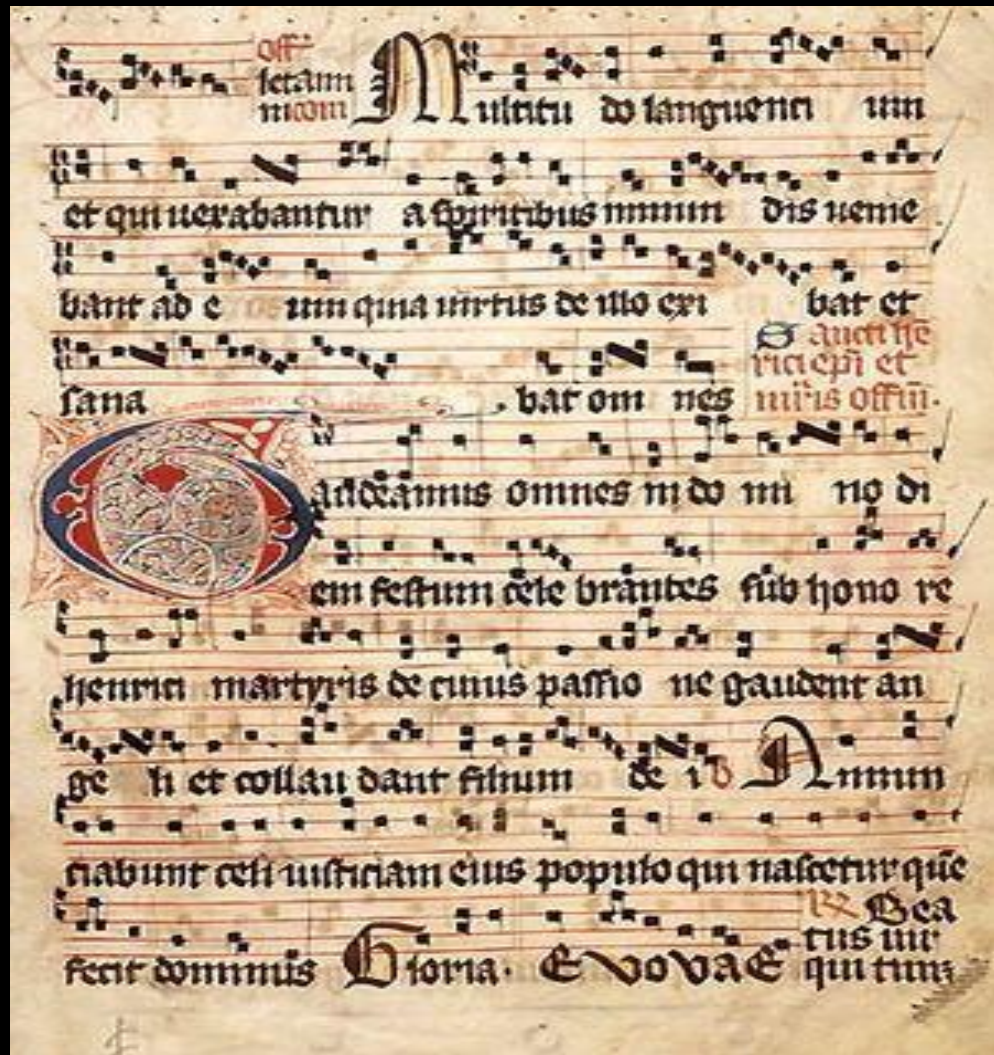 off
letamini
in com
Multitu do languenti um
et qui uexabantur a spiritibus inmun dis uenie
bant ad e um quia uirtus de illo exi bat et
sana bat om nes
Sancti hē
rici ep̄i et
mr̄is offm̄.
Gaudeamus omnes in do mi no di
em festum cele brantes sub hono re
henrici martyris de cuius passio ne gaudent an
ge li et collau dant filium de i Annun
ciabunt celi iusticiam eius populo qui nascetur quē
fecit dominus Gloria. EVOVAE
Bea
tus uir
qui tim